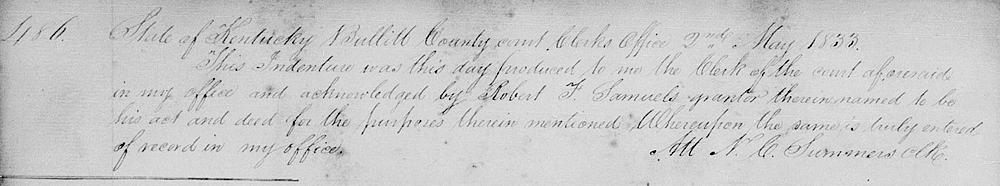 486. State of Kentucky & Bullitt County court, Clerks Office 2nd May 1833.
This Indenture was this day produced to me the Clerk of the court aforesaid
in my office and acknowledged by Robert F. Samuels grantor therein named to be
his act and deed for the purposes therein mentioned. Whereupon the same is truly entered
of record in my office. Att N. C. Summers Clk.